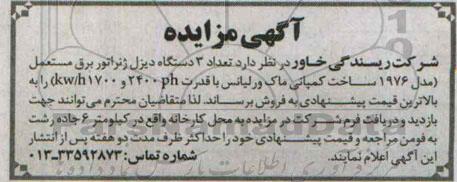 آگهی مزایده
شرکت ریسندگی خاور در نظر دارد تعداد ۳ دستگاه دیزل ژنراتور برق مستعمل
(مدل ۱۹۷۶ ساخت کمپانی ماک ورلیانس با قدرت ۲۴۰۰ph و ۱۷۰۰kw/h) را به
بالاترین قیمت پیشنهادی به فروش برساند. لذا متقاضیان محترم می‌توانند جهت
بازدید و دریافت فرم شرکت در مزایده به محل کارخانه واقع در کیلومتر ۶ جاده رشت
به فومن مراجعه و قیمت پیشنهادی خود را حداکثر ظرف مدت دو هفته پس از انتشار
این آگهی اعلام نمایند.
شماره تماس: ۳۳۵۹۲۸۷۳-۰۱۳